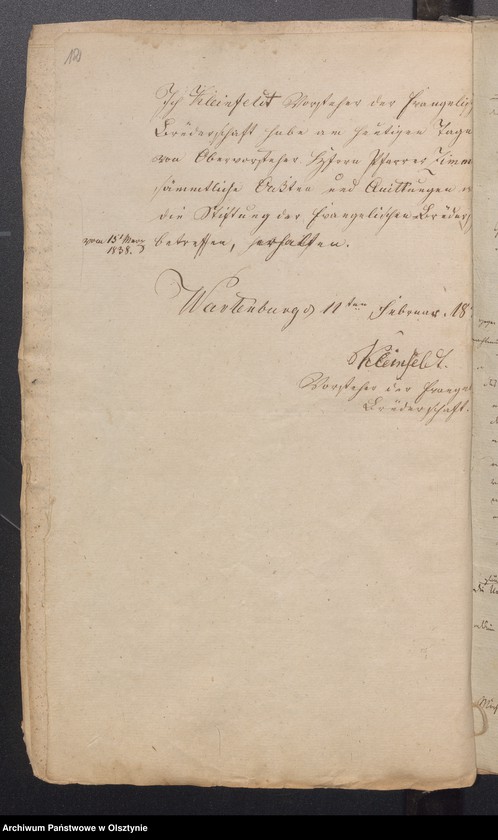 120
Ich Kleinfeldt Vorsteher der Evangelis
Brüderschaft habe am heutigen Tage
von Obervorsteher Herrn Pfarrer Timm
sämmtliche Ackten und Quittungen
die Stiftung der Evangelischen Brüder
vom 15t Merz 1838.
betreffen, erhalten.
Wartenburg d 11ten Februar 18
Kleinfeldt.
Vorsteher der Evange
Brüderschaft.
Archiwum Państwowe w Olsztynie